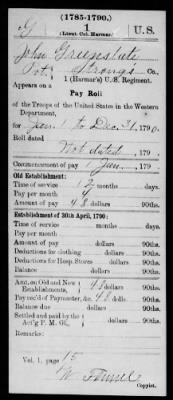 (1785-1790.)
G 1 U.S.
(Lieut. Col. Harmar)
John Greenslate
Pvt., Strong's Co.,
1 (Harmar's) U. S. Regiment.
Appears on a
Pay Roll
of the Troops of the United States in the Western
Department,
for Jan. 1 to Dec. 31, 1790.
Roll dated
Not dated, 179
Commencement of pay 1 Jan, 179
Old Establishment:
Time of service 12 months days.
Pay per month 4
Amount of pay 48 dollars 90ths.
Establishment of 30th April, 1790:
Time of service months days.
Pay per month
Amount of pay dollars 90ths.
Deductions for clothing dollars 90ths.
Deductions for Hosp. Stores dollars 90ths.
Balance dollars 90ths.
Amt. on Old and New
Establishments, 48 dollars 90ths.
Pay rec'd of Paymaster, &c. 48 dolls 90ths.
Balance due dollars 90ths.
Settled and paid by the
Act'g P. M. Gl.,
Remarks:
Vol. 1, page 15
W.
Copyist.